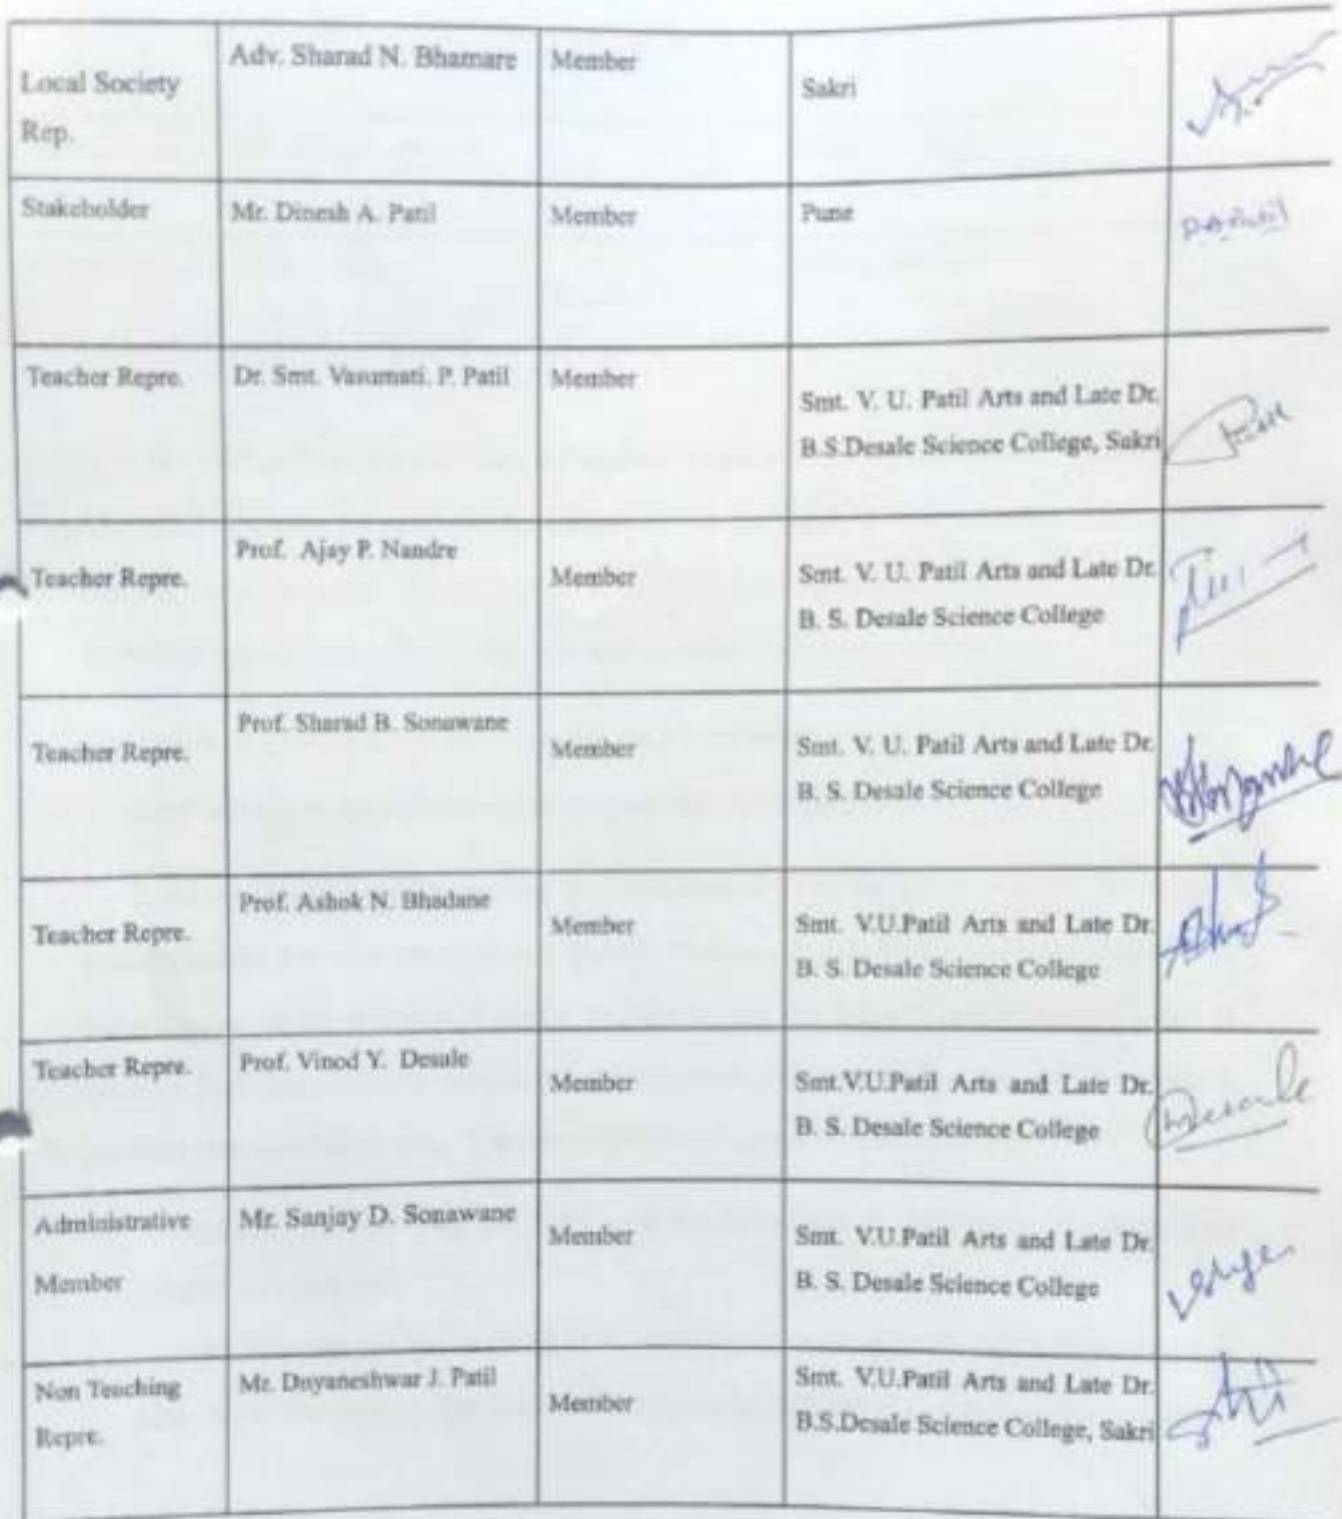 Local Society
Rep.
Adv. Sharad N. Bhamare
Member
Sakri
Stakeholder
Mr. Dinesh A. Patil
Member
Pune
D.A.Patil
Teacher Repre.
Dr. Smt. Vasumati. P. Patil
Member
Smt. V. U. Patil Arts and Late Dr.
B.S.Desale Science College, Sakri
Teacher Repre.
Prof. Ajay P. Nandre
Member
Smt. V. U. Patil Arts and Late Dr.
B. S. Desale Science College
Teacher Repre.
Prof. Sharad B. Sonawane
Member
Smt. V. U. Patil Arts and Late Dr.
B. S. Desale Science College
Teacher Repre.
Prof. Ashok N. Bhadane
Member
Smt. V.U.Patil Arts and Late Dr.
B. S. Desale Science College
Teacher Repre.
Prof. Vinod Y. Desale
Member
Smt.V.U.Patil Arts and Late Dr.
B. S. Desale Science College
Desale
Administrative
Member
Mr. Sanjay D. Sonawane
Member
Smt. V.U.Patil Arts and Late Dr.
B. S. Desale Science College
Non Teaching
Repre.
Mr. Dnyaneshwar J. Patil
Member
Smt. V.U.Patil Arts and Late Dr.
B.S.Desale Science College, Sakri